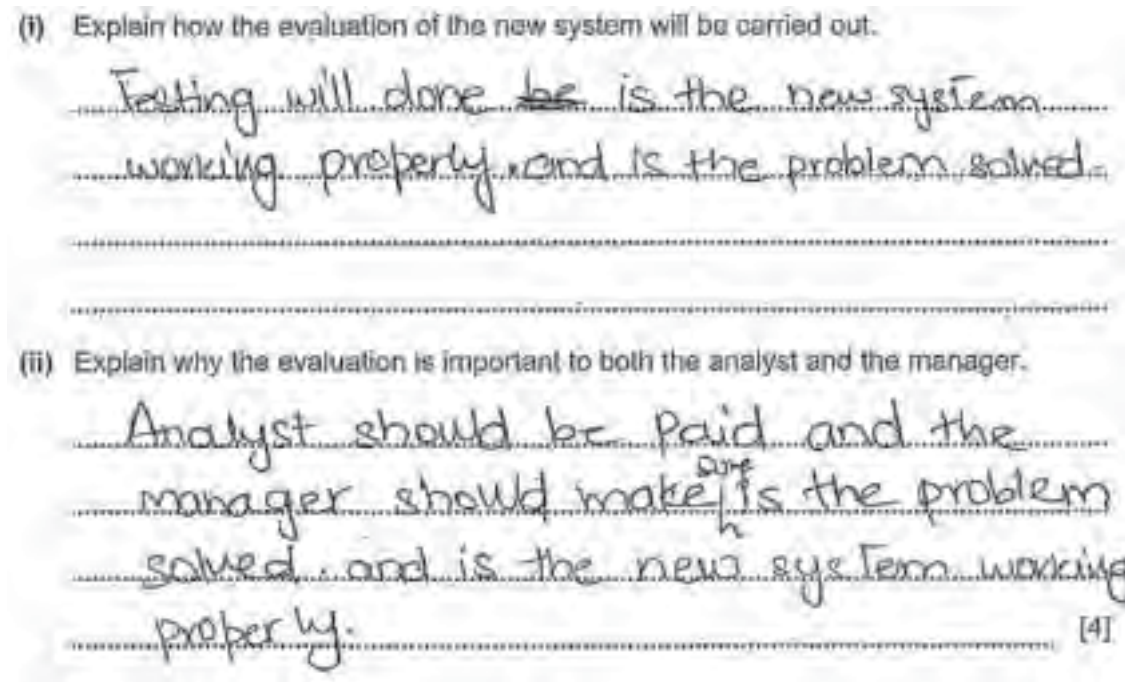 (i) Explain how the evaluation of the new system will be carried out.
Testing will done be is the new system
working properly. and is the problem solved.
(ii) Explain why the evaluation is important to both the analyst and the manager.
Analyst should be paid and the
manager should make sure is the problem
solved. and is the new system working
properly.
[4]